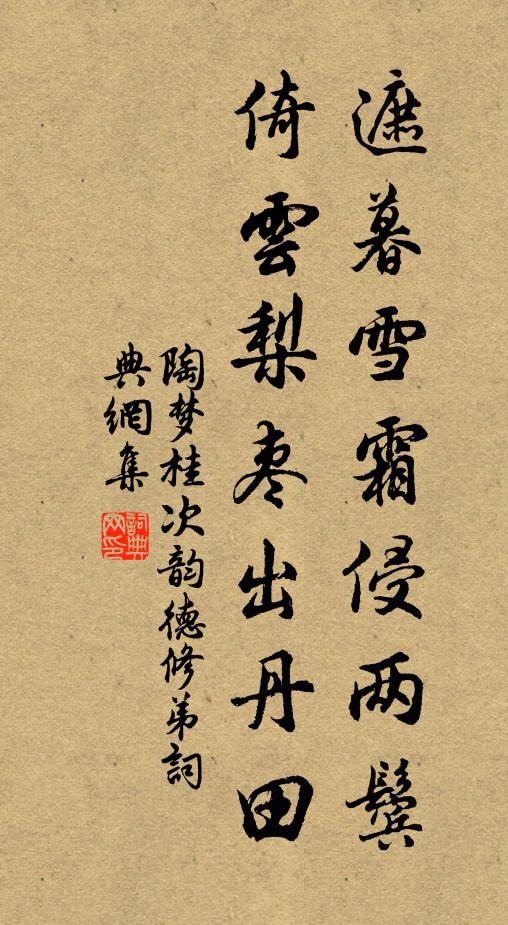 遮暮雪霜侵两鬓
倚雲梨枣出丹田
陶梦桂次韵德修弟詞
典網集
詞典网印